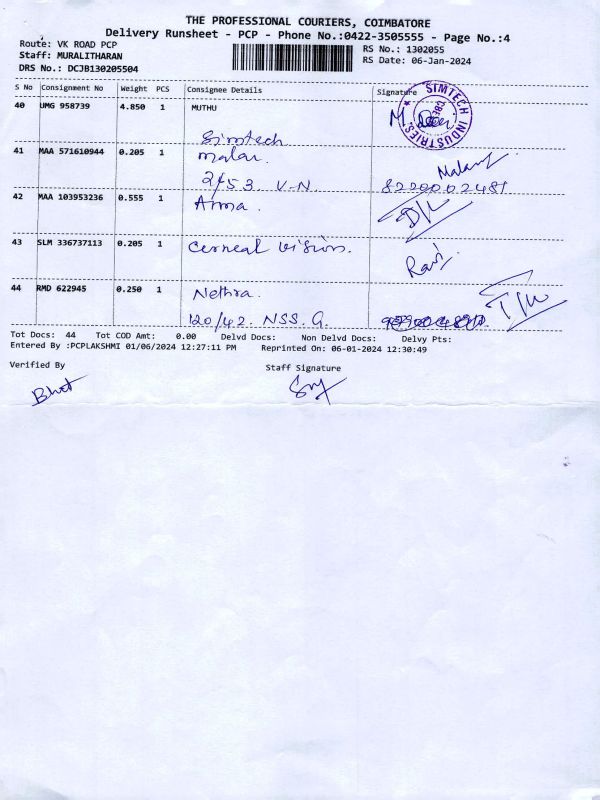 THE PROFESSIONAL COURIERS, COIMBATORE
Delivery Runsheet - PCP - Phone No.:0422-3505555 - Page No.:4
Route: VK ROAD PCP
RS No.: 1302055
Staff: MURALITHARAN
RS Date: 06-Jan-2024
DRS No.: DCJB130205504
S No Consignment No Weight PCS Consignee Details Signature
40 UMG 958739 4.850 1 MUTHU
SIMTECH INDUSTRIES
Simtech
41 MAA 571610944 0.205 1 malar.
Malar
2/53 V-N. 8220002481
42 MAA 103953236 0.555 1
D/L
43 SLM 336737113 0.205 1 Cerneal vision.
Ravi
44 RMD 622945 0.250 1 Nethra.
120/42 NSS. G.
Tot Docs: 44 Tot COD Amt: 0.00 Delvd Docs: Non Delvd Docs: Delvy Pts:
Entered By :PCPLAKSHMI 01/06/2024 12:27:11 PM Reprinted On: 06-01-2024 12:30:49
Verified By Staff Signature